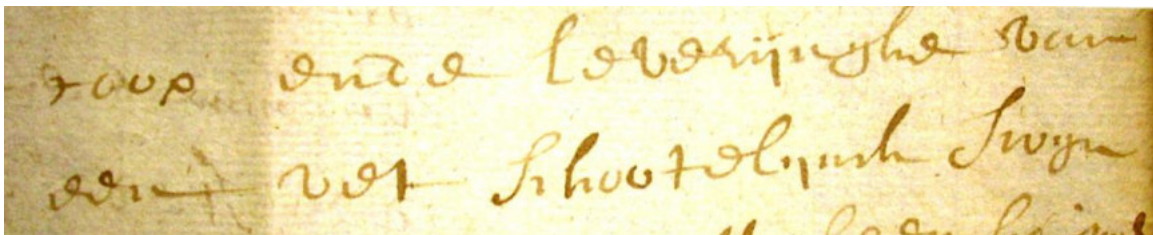 coop ende leverijnghe van
een vet schootelynck swyn